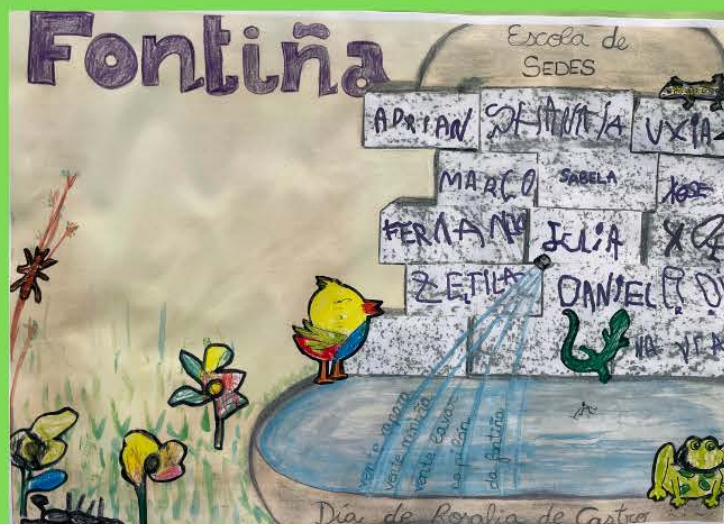 Fontiña
Escola de
SEDES
ADRIAN SHANAIA UXIA
MARCO SABELA XOSE
FERNANDO JULIA
ZETILA DANIEL
vente rapaza
vente miniña
vente lavar
no pilón
da fontiña
Día de Rosalía de Castro